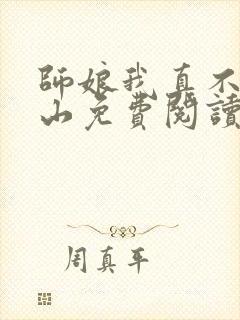 師娘我真不
山免費閱讀
周真平